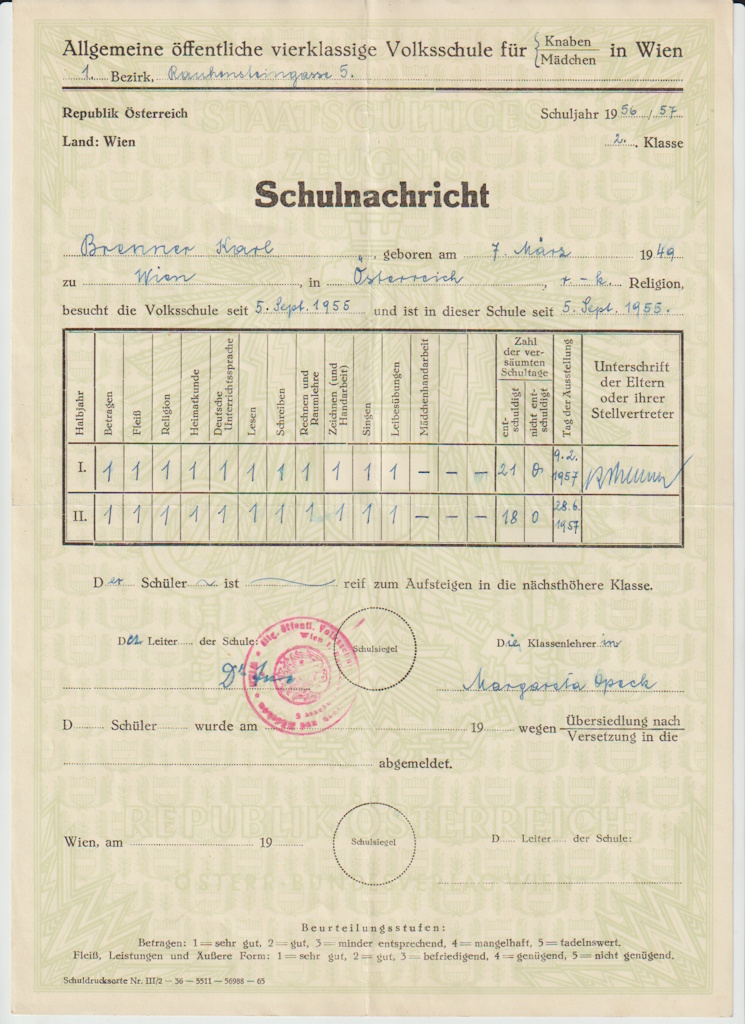 Allgemeine öffentliche vierklassige Volksschule für {Knaben in Wien
Mädchen
1. Bezirk, Rauhensteingasse 5.
Republik Österreich Schuljahr 1956/57
Land: Wien 2. Klasse
Schulnachricht
Brenner Karl, geboren am 7. März 1949
zu Wien, in Österreich, r.-k. Religion,
besucht die Volksschule seit 5. Sept. 1955 und ist in dieser Schule seit 5. Sept. 1955.
Halbjahr Betragen Fleiß Religion Heimatkunde Deutsche Unterrichtssprache Lesen Schreiben Rechnen und Raumlehre Zeichnen (und Handarbeit) Singen Leibesübungen Mädchenhandarbeit Zahl der versäumten Schultage entschuldigt nicht entschuldigt Tag der Ausstellung Unterschrift der Eltern oder ihrer Stellvertreter
I. 1 1 1 1 1 1 1 1 1 1 1 – – – 21 0 9.2. 1957 Brenner
II. 1 1 1 1 1 1 1 1 1 1 1 – – – 18 0 28.6. 1957
Der Schüler ist reif zum Aufsteigen in die nächsthöhere Klasse.
Der Leiter der Schule: Schulsiegel Die Klassenlehrerin
Margareta Opeck
D Schüler wurde am 19 wegen Übersiedlung nach
Versetzung in die
abgemeldet.
Wien, am 19 Schulsiegel D Leiter der Schule:
REPUBLIK ÖSTERREICH
Beurteilungsstufen:
Betragen: 1 = sehr gut, 2 = gut, 3 = minder entsprechend, 4 = mangelhaft, 5 = tadelnswert.
Fleiß, Leistungen und Äußere Form: 1 = sehr gut, 2 = gut, 3 = befriedigend, 4 = genügend, 5 = nicht genügend.
Schuldrucksorte Nr. III/2 — 56 — 5511 — 56988 — 65